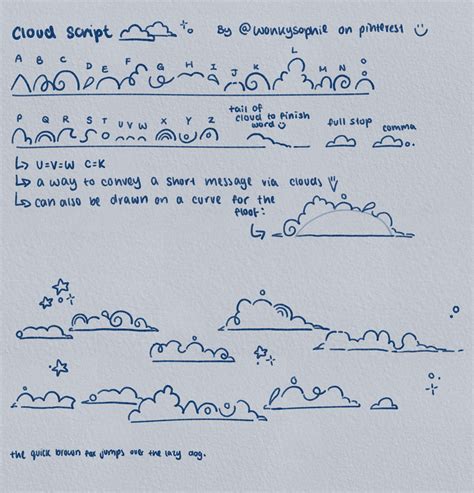 Cloud Script By @wonkysophie on pinterest
A B C D E F G H I J K L M N O
P Q R S T U V W X Y Z tail of cloud to finish word full stop comma
↳ U=V=W C=K
↳ a way to convey a short message via clouds
↳ can also be drawn on a curve for the
floof:
the quick brown fox jumps over the lazy dog.